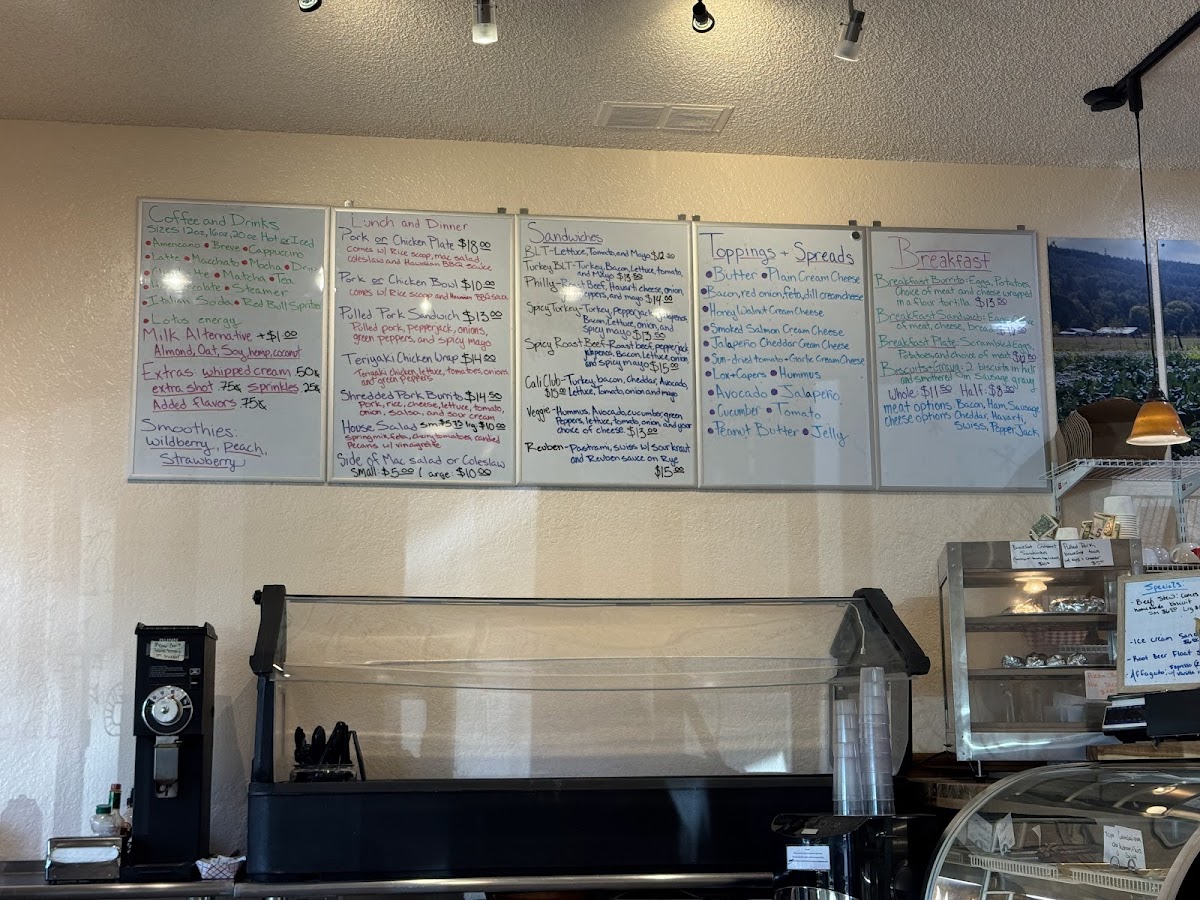 Coffee and Drinks
Sizes 12oz, 16oz, 20oz Hot or Iced
• Americano • Breve • Cappuccino
• Latte • Macchiato • Mocha
• Matcha • Tea
• Steamer
• Italian Soda • Red Bull Spritzer
• Lotus energy
Milk Alternative +$1.00
Almond, Oat, Soy, hemp, coconut
Extras whipped cream 50¢
extra shot 75¢ sprinkles 25¢
Added flavors 75¢
Smoothies:
wildberry, peach,
Strawberry
Lunch and Dinner
Pork or Chicken Plate $18.00
comes w/ Rice scoop, mac salad,
coleslaw and Hawaiian BBQ sauce
Pork or Chicken Bowl $10.00
comes w/ Rice scoop and Hawaiian BBQ sauce
Pulled Pork Sandwich $13.00
Pulled pork, pepperjack, onions,
green peppers, and spicy mayo
Teriyaki Chicken Wrap $14.00
Teriyaki chicken, lettuce, tomatoes, onions
and green peppers
Shredded Pork Burrito $14.50
Pork, rice, cheese, lettuce, tomato,
onion, salsa, and sour cream
House Salad sm $5.75 lg $10.00
springmix, feta, cherry tomatoes, candied
Pecans w/ vinaigrette
Side of Mac salad or Coleslaw
Small $5.00 Large: $10.00
Sandwiches
BLT-Lettuce, Tomato, and Mayo $12.00
Turkey BLT-Turkey, Bacon, Lettuce, tomato,
and Mayo $13.00
Philly-Roast Beef, Havarti cheese, onion,
peppers, and mayo $14.00
Spicy Turkey-Turkey, Pepperjack, jalapenos,
Bacon, Lettuce, onion, and
spicy mayo $15.00
Spicy Roast Beef-Roast beef, pepperjack,
jalapenos, Bacon, Lettuce, onion
and spicy mayo $15.00
Cali Club-Turkey, bacon, Cheddar, Avocado,
$15.00 Lettuce, Tomato, onion and mayo
Veggie-Hummus, Avocado, cucumber, green
Peppers, lettuce, tomato, onion, and your
choice of cheese. $13.00
Reuben-Pastrami, swiss w/ sour kraut
and Reuben sauce on Rye
$15.00
Toppings + Spreads
• Butter • Plain Cream Cheese
• Bacon, red onion, feta, dill cream cheese
• Honey Walnut Cream Cheese
• Smoked Salmon Cream Cheese
• Jalapeño Cheddar Cream Cheese
• Sun-dried tomato + Garlic Cream Cheese
• Lox + Capers • Hummus
• Avocado • Jalapeño
• Cucumber • Tomato
• Peanut Butter • Jelly
Breakfast
Breakfast Burrito: Eggs, Potatoes,
Choice of meat and cheese wrapped
in a flour tortilla. $13.00
Breakfast Sandwich: Eggs,
of meat, cheese, bread
Breakfast Plate: Scrambled Eggs,
Potatoes, and choice of meat
Biscuits + Gravy: 2 biscuits in half
and smothered in Sausage gravy
Whole: $11.50 Half: $8.00
meat options Bacon, Ham, Sausage
cheese options Cheddar, Havarti,
Swiss, Pepper Jack,
Breakfast Croissant
Sandwiches
Pulled Pork
Specials:
- Beef Stew: comes
homemade biscuit
- Ice Cream
- Root Beer Float
- Affogato: